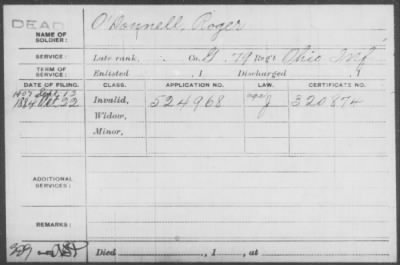 DEAD
NAME OF SOLDIER: O'Donnell, Roger
SERVICE: Late rank, Co. G. 79 Reg't Ohio Inf
TERM OF SERVICE: Enlisted , 1 Discharged , 1
DATE OF FILING. CLASS. APPLICATION NO. LAW. CERTIFICATE NO.
1884 Oct 22 Invalid, 524968 J 320874
Widow,
Minor,
ADDITIONAL SERVICES:
REMARKS:
Died , 1 , at